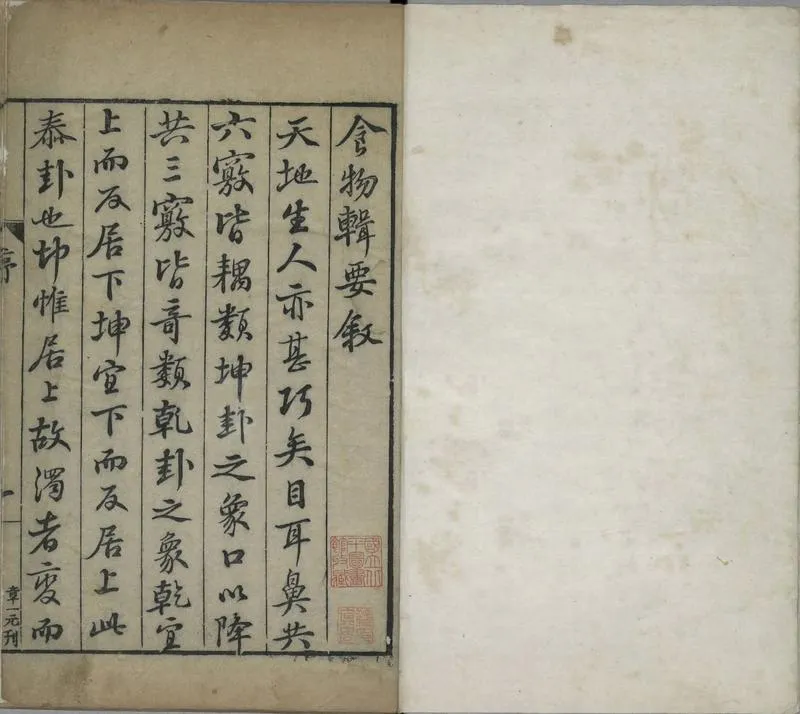 食物輯要敘
天地生人亦甚巧矣目耳鼻共
六竅皆耦類坤卦之象口以降
共三竅皆竒類乾卦之象乾宜
上而反居下坤宜下而反居上此
泰卦也坤惟居上故濁者變而
序
一
章一元刊